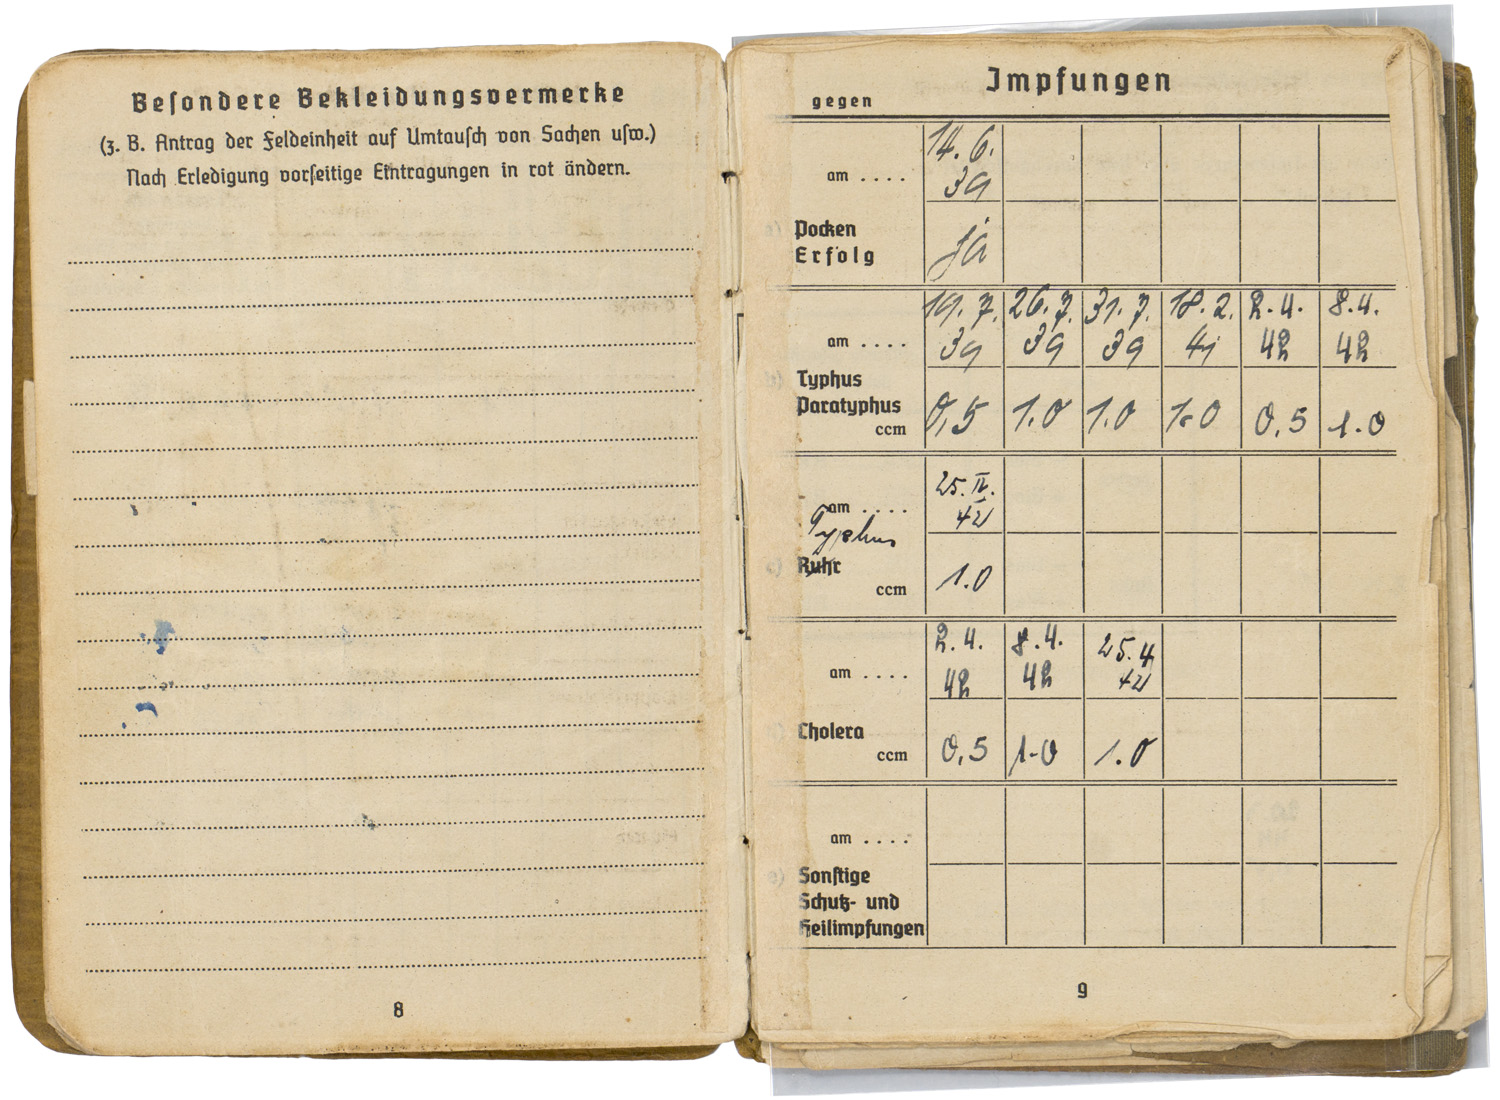 Besondere Bekleidungsvermerke
(z. B. Antrag der Feldeinheit auf Umtausch von Sachen usw.)
Nach Erledigung vorseitige Eintragungen in rot ändern.
8
Impfungen
gegen
am . . . . 14. 6. 39
Pocken
Erfolg ja
am . . . . 19. 7. 39 26. 7. 39 31. 7. 39 18. 2. 41 2. 4. 42 8. 4. 42
Typhus
Paratyphus
ccm 0,5 1.0 1.0 1.0 0,5 1.0
am . . . . 25. IV. 42
Typhus
Ruhr
ccm 1.0
am . . . . 2. 4. 42 8. 4. 42 25. 4 42
Cholera
ccm 0,5 1.0 1.0
am . . . .
Sonstige
Schutz- und
Heilimpfungen
9